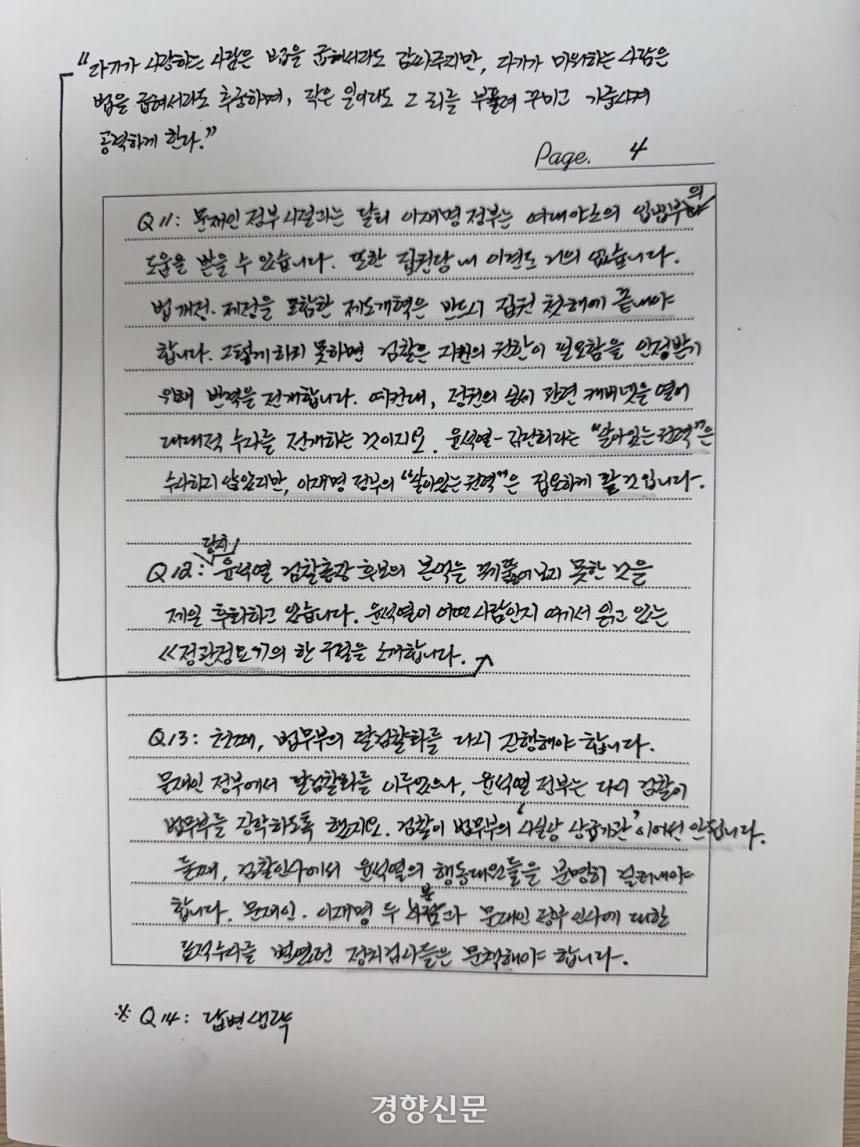 “자기가 사랑하는 사람은 법을 굽혀서라도 감싸주지만, 자기가 미워하는 사람은
법을 굽혀서라도 추궁하며, 작은 일이라도 그 죄를 부풀려 꾸미고 기를 써서
공격하게 한다.”
Page. 4
Q11: 문재인 정부 시절과는 달리 이재명 정부는 여대야소의 입법부의
도움을 받을 수 있습니다. 또한 집권당 내 이견도 거의 없습니다.
법 개정·제정을 포함한 제도개혁은 반드시 집권 첫해에 끝내야
합니다. 그렇게 하지 못하면 검찰은 자신의 권한이 필요함을 인정받기
위해 반격을 전개합니다. 예컨대, 정권의 실세 관련 캐비넷을 열어
대대적 수사를 전개하는 것이지요. 윤석열-김건희라는 “살아있는 권력”은
수사하지 않았지만, 이재명 정부의 “살아있는 권력”은 집요하게 팔 것입니다.
당시
Q12: 윤석열 검찰총장 후보의 본색을 꿰뚫어 보지 못한 것을
제일 후회하고 있습니다. 윤석열이 어떤 사람인지 여기서 읽고 있는
《정관정요》의 한 구절을 소개합니다.
Q13: 첫째, 법무부의 탈검찰화를 다시 진행해야 합니다.
문재인 정부에서 탈검찰화를 이루었으나, 윤석열 정부는 다시 검찰이
법무부를 장악하도록 했지요. 검찰이 법무부의 ‘사실상 상급기관’이어선 안됩니다.
둘째, 검찰인사에서 윤석열의 행동대원들을 분명히 걸러내야
합니다. 문재인·이재명 두 분과 문재인 정부 인사에 대한
표적수사를 벌였던 정치검사들은 문책해야 합니다.
※ Q14: 답변 생략
경향신문